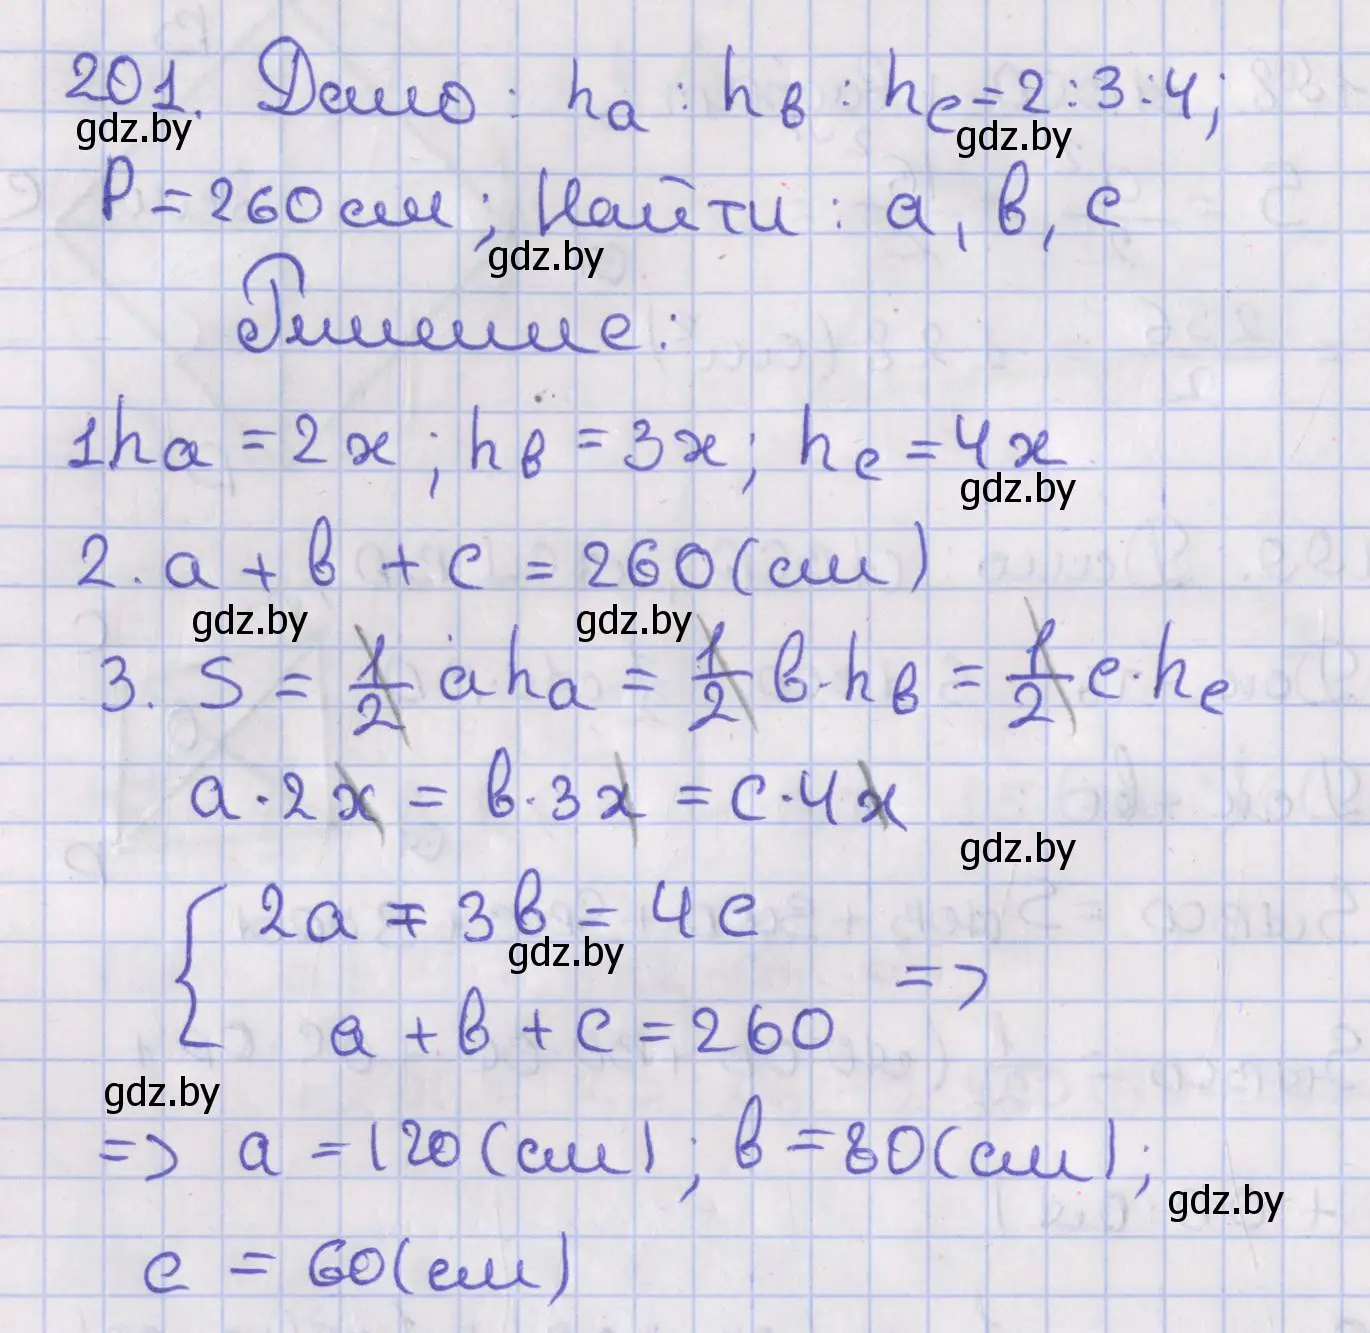 201. Дано: hₐ : hв : hс = 2:3:4;
gdz.by gdz.by
P = 260 см; Найти: a, в, с
gdz.by
Решение:
1 hₐ = 2x; hв = 3x; hс = 4x
gdz.by
2. a + в + с = 260 (см)
gdz.by gdz.by
3. S = 1/2 a·hₐ = 1/2 в·hв = 1/2 с·hс
a·2x = в·3x = с·4x
gdz.by
{ 2a = 3в = 4с
gdz.by
a + в + с = 260 =>
gdz.by
=> a = 120 (см); в = 80 (см);
gdz.by
с = 60 (см)